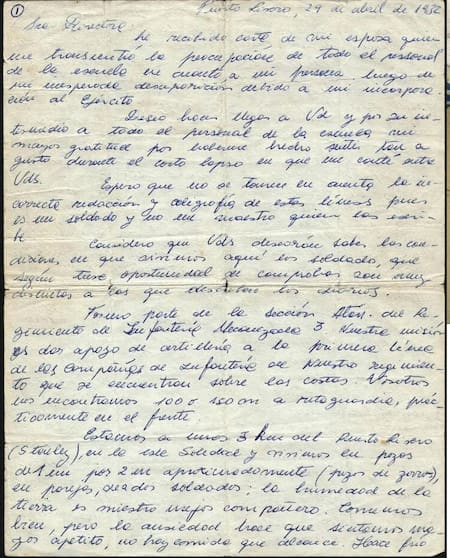 1
Puerto Rivero, 29 de abril de 1982
Sra Directora
he recibido carta de mi esposa quien
me transmitió la preocupación de todo el personal
de la escuela en cuanto a mi persona luego de
mi inesperada desaparición debido a mi incorpora
ción al Ejército
Deseo hacer llegar a Vd y por su in-
termedio a todo el personal de la escuela mi
mayor gratitud por haberme hecho sentir tan a
gusto durante el corto lapso en que me conté entre
Vds.
Espero que no se tomen en cuenta la in-
correcta redacción y caligrafía de estas líneas pues
es un soldado y no un maestro quien las escri-
be
Considero que Vds desearán saber las con-
diciones en que vivimos aquí los soldados, que
según tuve oportunidad de comprobar son muy
distintas a las que describen los diarios.
Formo parte de la sección del Re-
gimiento de Infantería Mecanizada 3 Nuestra misión
es dar apoyo de artillería a la primera línea
de las compañías de Infantería de nuestro regimien-
to que se encuentran sobre las costas. Nosotros
nos encontramos 100 o 150 m a retaguardia, prác-
ticamente en el frente.
Estamos a unos 3 km del Puerto Rivero
(Stanley), en la isla Soledad y vivimos en pozos
de 1 m por 2 m aproximadamente (pozos de zorros),
en parejas, de a dos soldados; la humedad de la
tierra es nuestro mejor compañero. Comemos
bien, pero la ansiedad hace que sintamos ma-
yor apetito, no hay comida que alcance. Hace frío